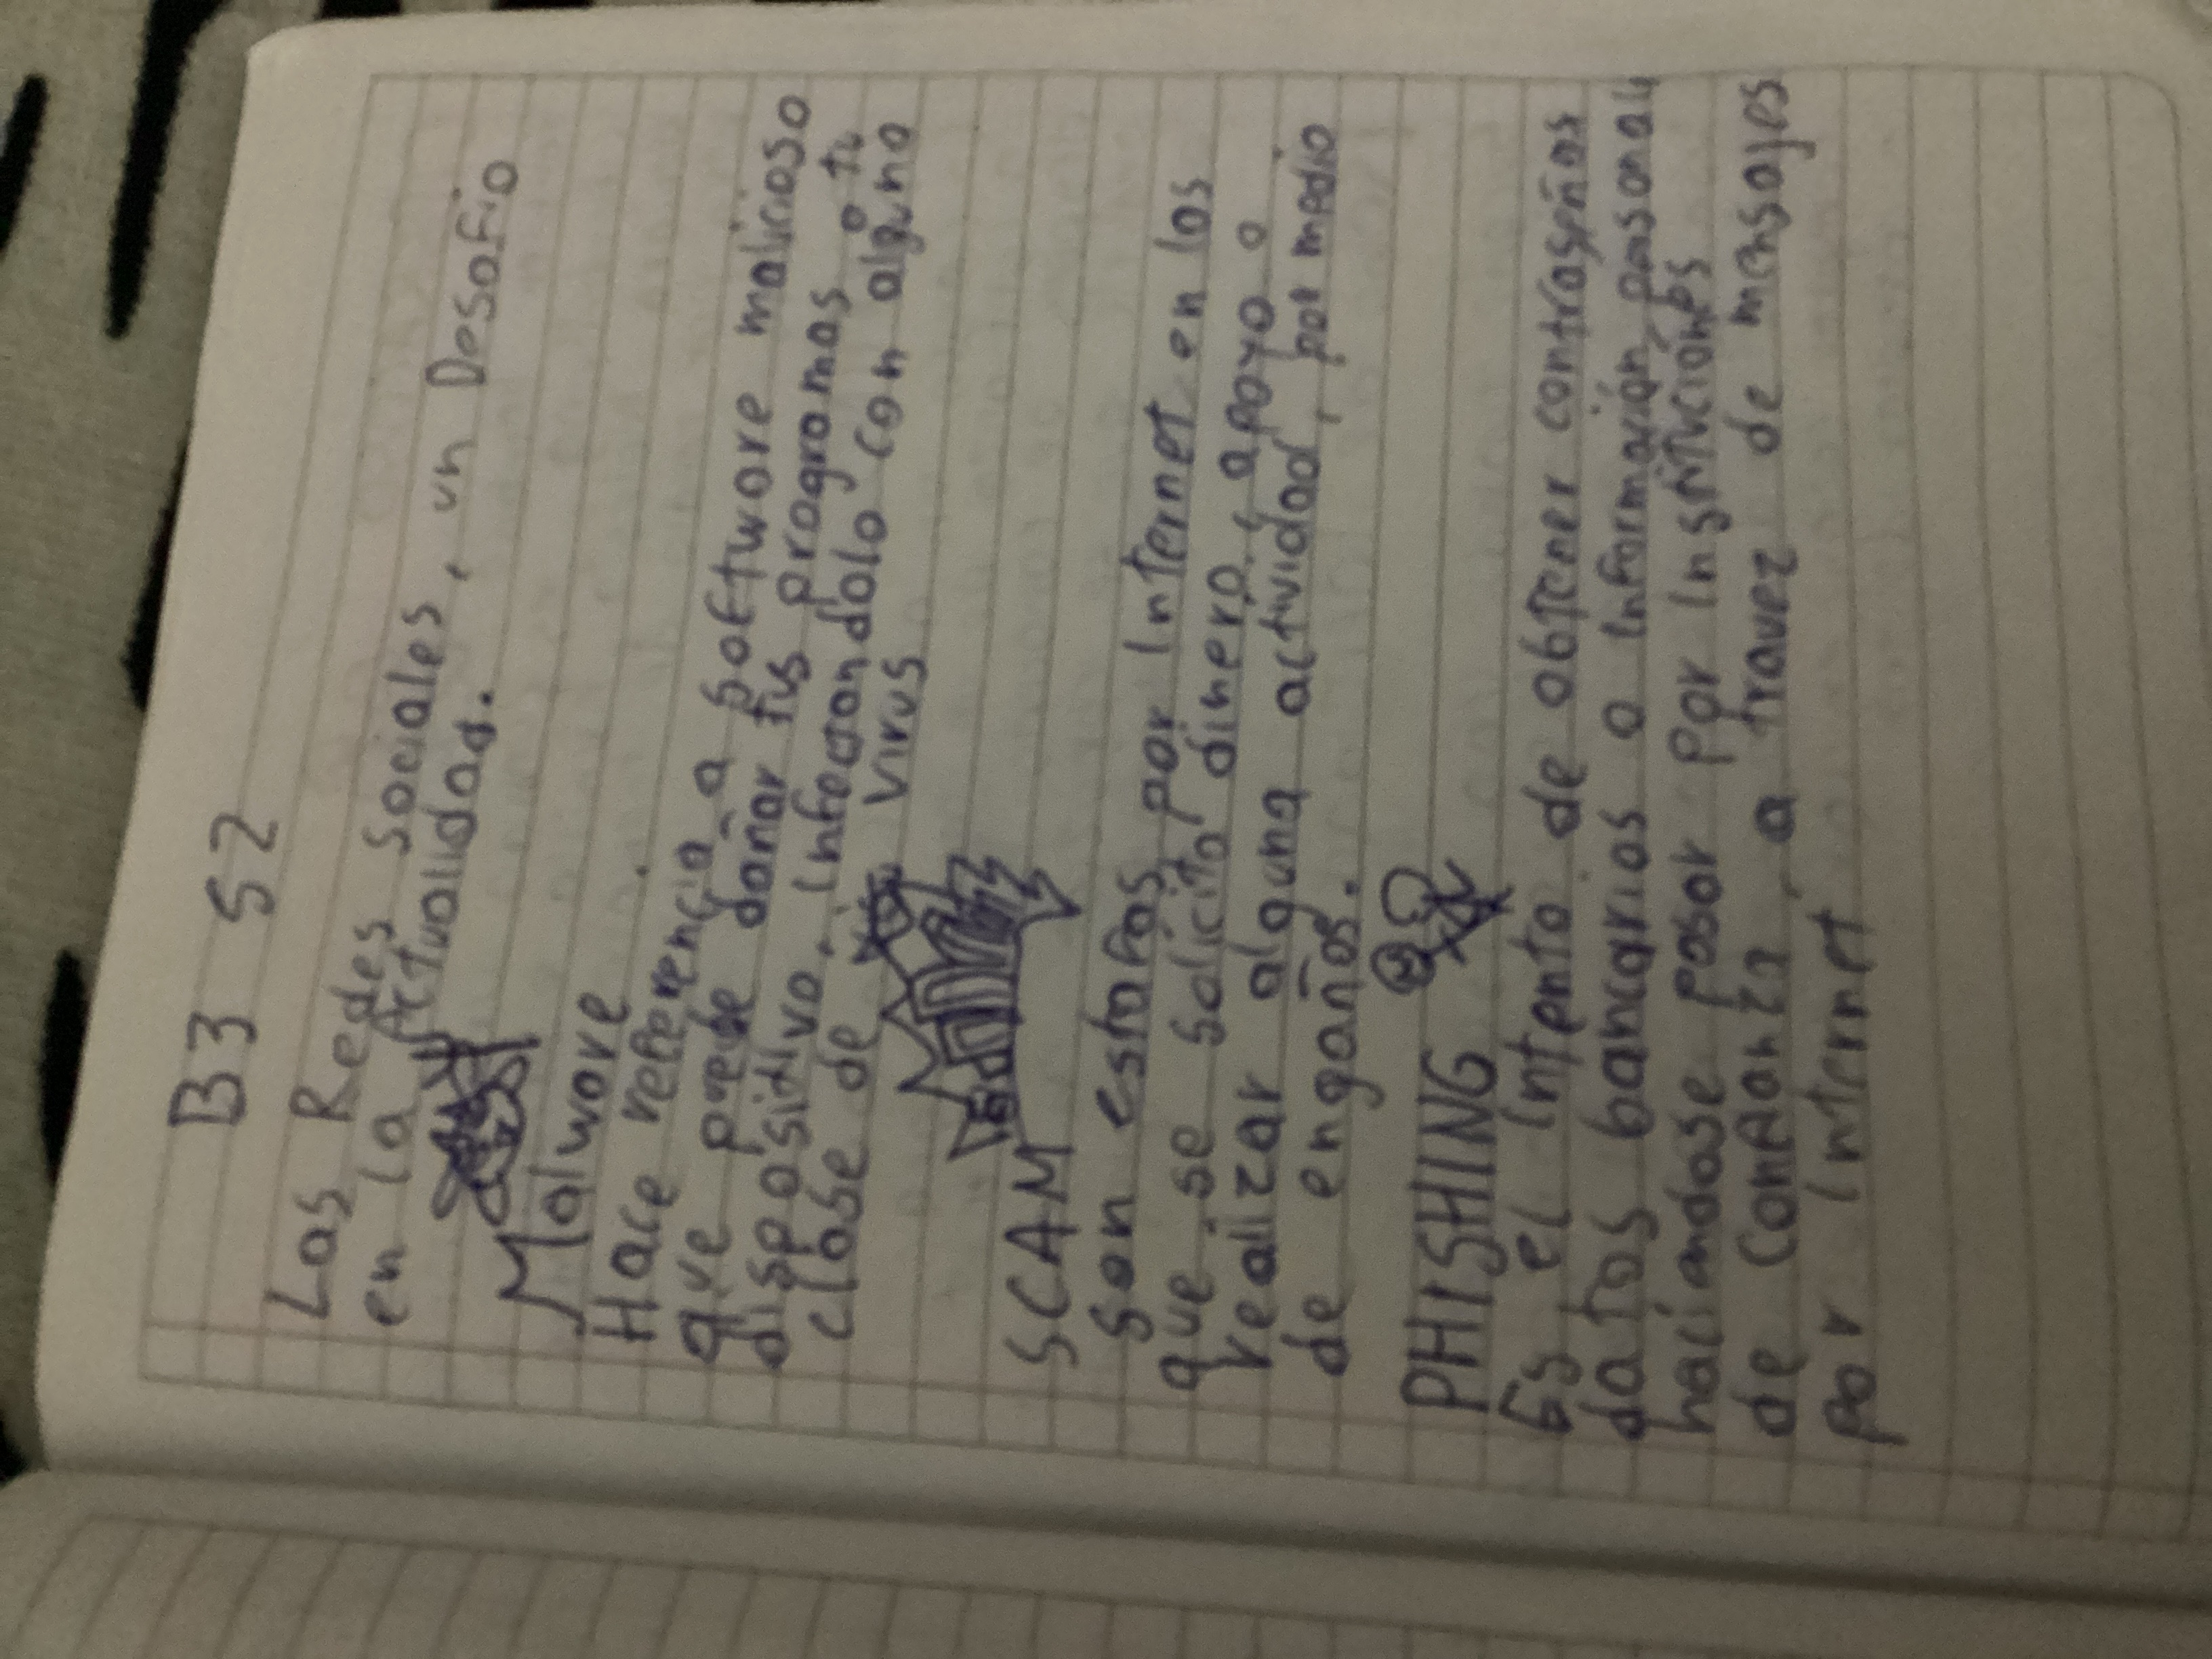 B3 S2
Las Redes sociales, un Desafio
en la Actualidad.
Malware
Hace referencia a software malicioso
que puede dañar tus programas o tu
dispositivo, infectandolo con alguna
clase de virus
SCAM
Son estafas por Internet en los
que se solicita dinero, apoyo o
realizar alguna actividad, por medio
de engaños.
PHISHING
Es el intento de obtener contraseñas
datos bancarios o información personal,
haciendose pasar por Instituciones
de confianza, a travez de mensajes
por internet